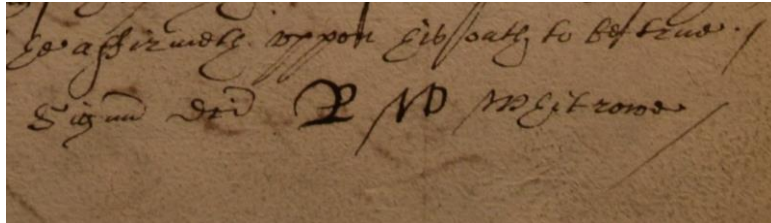 he affirmeth vppon his oath to be true /
Signũ dc̃i R W Whitrowe /